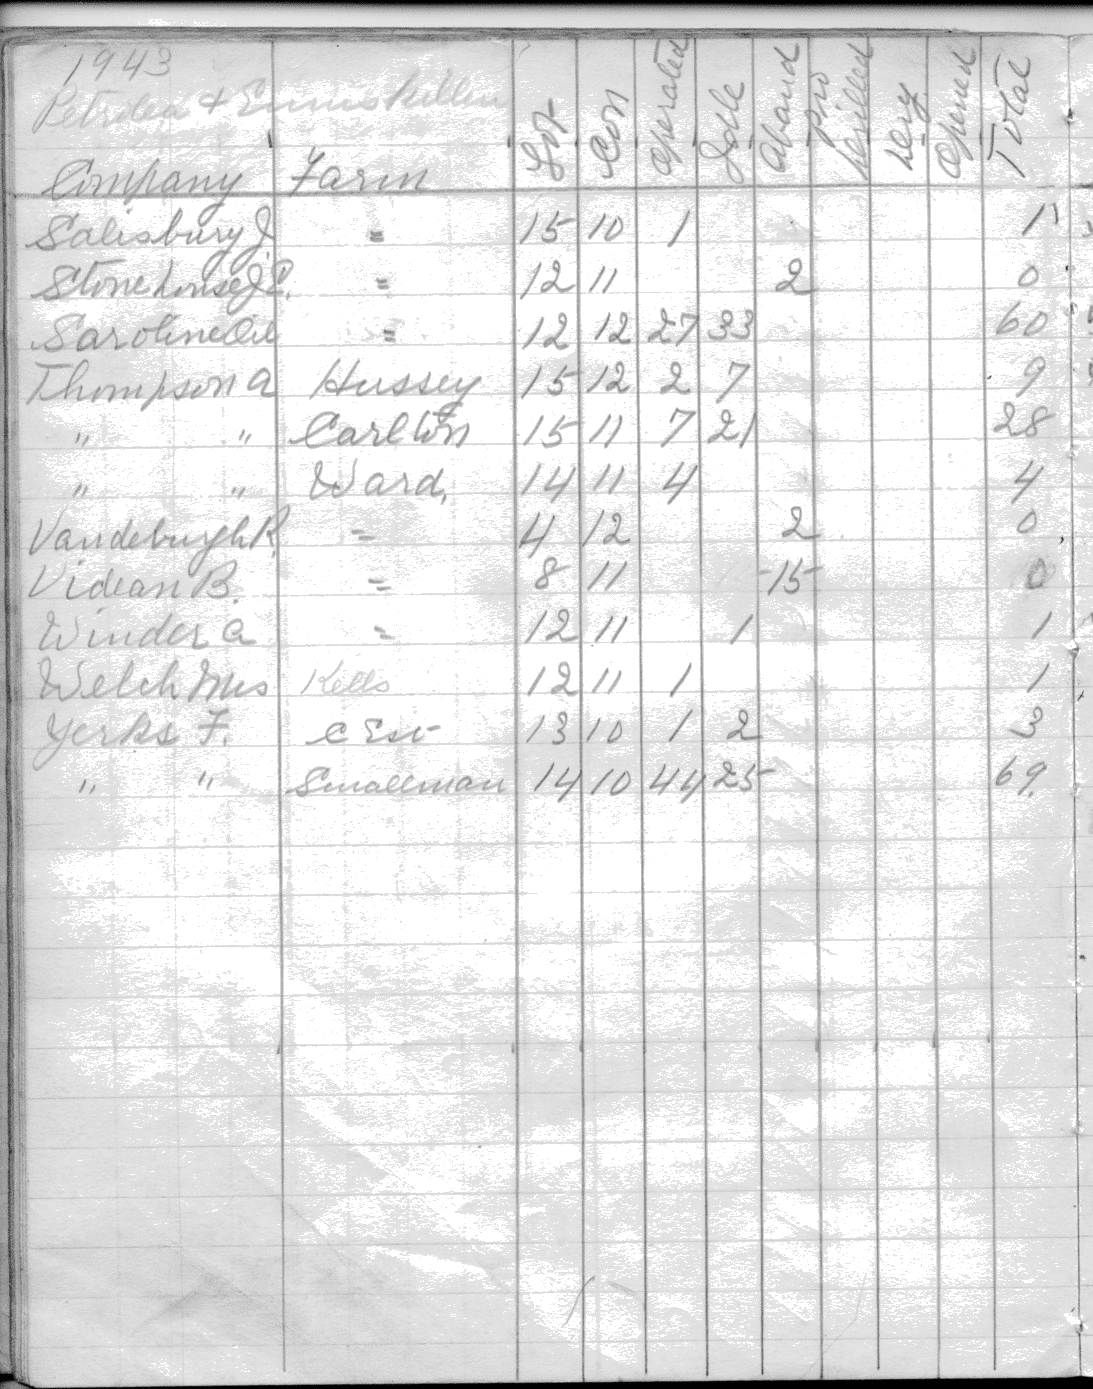 1943
Petrolea & Enniskillen
Company Farm Lot Con Operated Idle Aband Pro Drilled Dry Opened Total
Salisbury J. " 15 10 1 1
Stonehouse J. " 12 11 2 0
Saroline Oil " 12 12 27 33 60
Thompson A Hussey 15 12 2 7 9
" " Carlton 15 11 7 21 28
" " Ward, 14 11 4 4
Vandeburgh R. " 4 12 2 0
Videan B. " 8 11 15 0
Winder A " 12 11 1 1
Welch Mrs Kells 12 11 1 1
Yerks F. C Est 13 10 1 2 3
" " Smallman 14 10 44 25 69